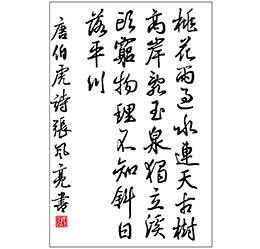 桃花雨過水連天古樹
高岸飛玉泉獨立溪
頭窮物理不知斜日
落平川
唐伯虎詩張風亮書